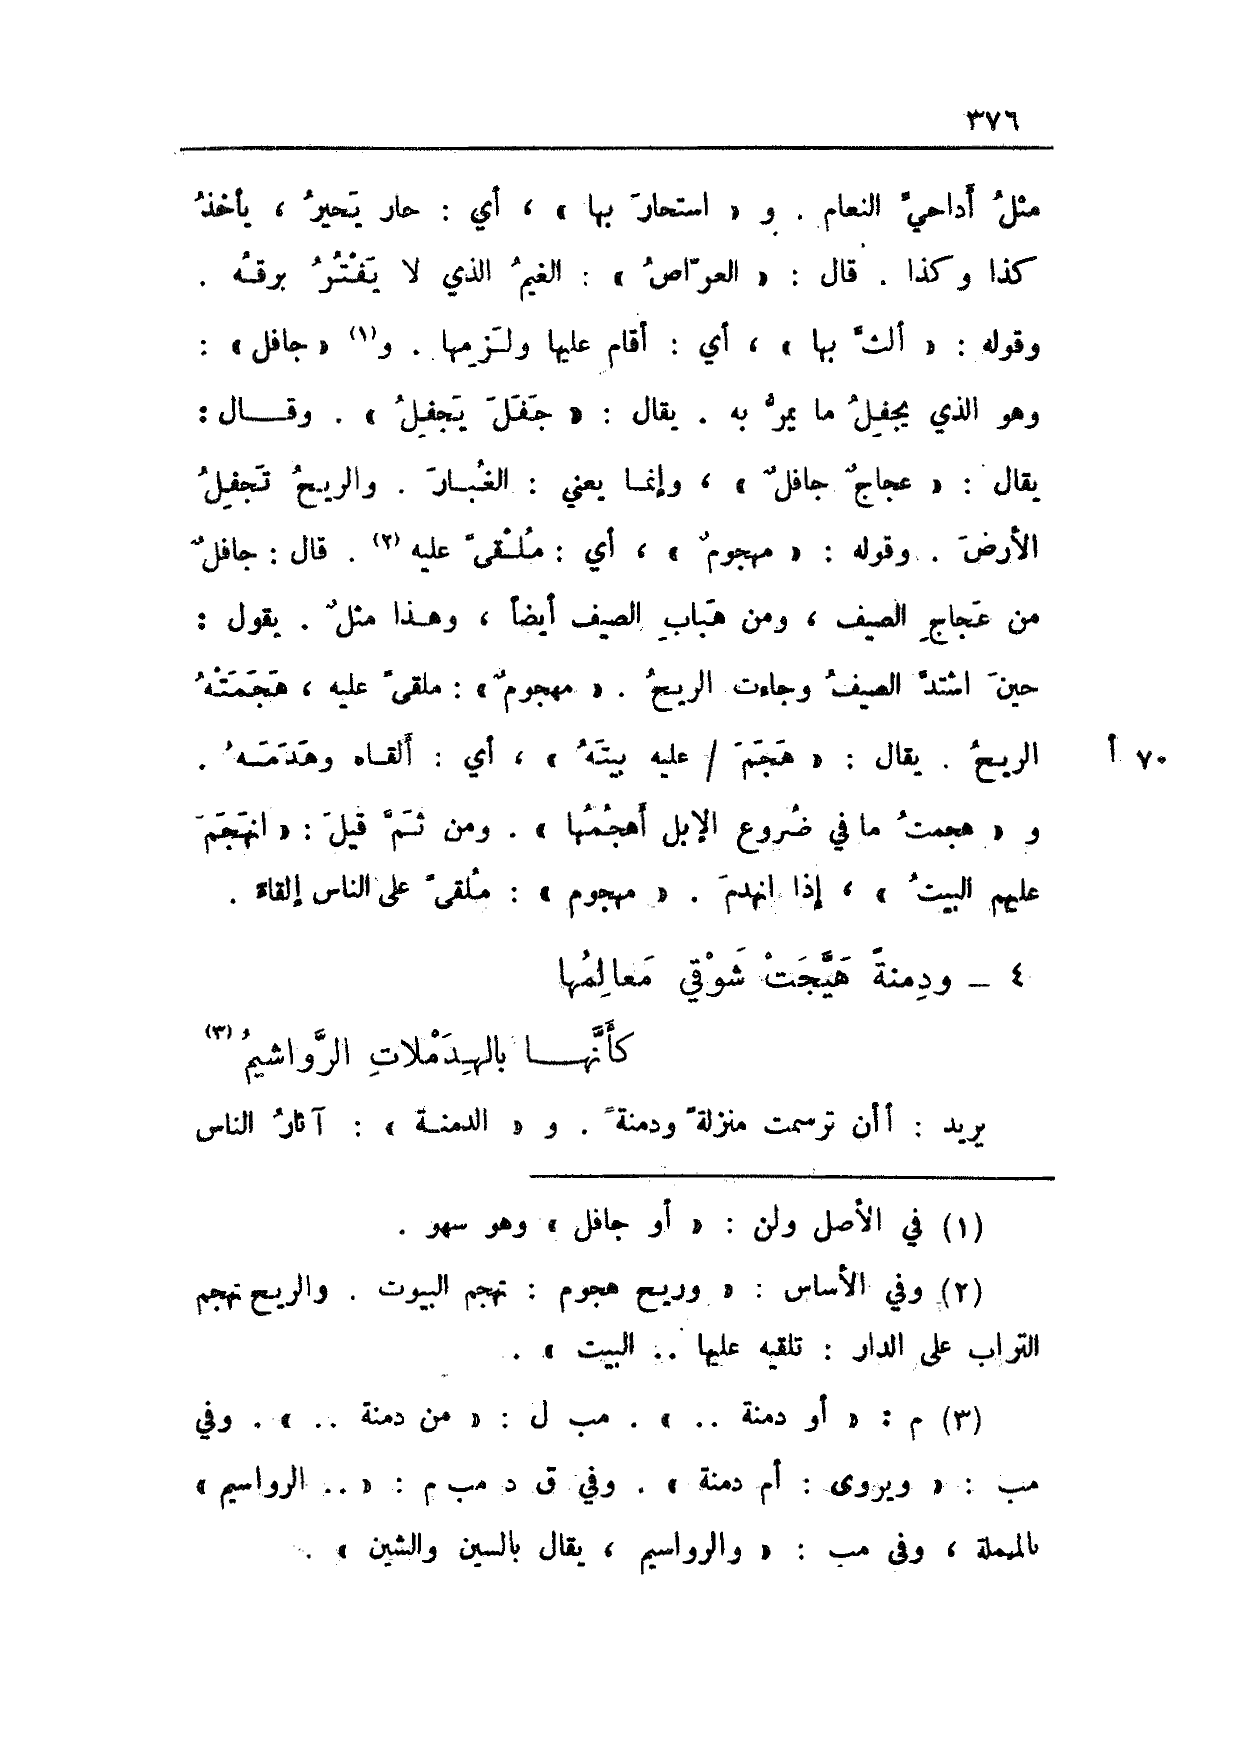 ٣٧٦
مثلُ أَداحيَّ النعام . و « استحارَ بها » ، أي : حار يَحيرُ ، يأخذُ
كذا وكذا . قال : « العرّاصُ » : الغيمُ الذي لا يَفْتُرُ برقُه .
وقوله : « ألثَّ بها » ، أي : أقام عليها ولَزِمها . و(١) « جافل » :
وهو الذي يجفِلُ ما يمرُّ به . يقال : « جَفَلَ يَجفِلُ » . وقـــال :
يقال : « عجاجٌ جافلٌ » ، وإنما يعني : الغُبـارَ . والريحُ تَجفِلُ
الأرضَ . وقوله : « مهجومٌ » ، أي : مُلْقىً عليه (٢) . قال : جافلٌ
من عَجاجِ الصيف ، ومن هَبابِ الصيف أيضاً ، وهـذا مثلٌ . يقول :
حينَ اشتدَّ الصيفُ وجاءت الريحُ . « مهجومٌ » : ملقىً عليه ، هَجَمَتْهُ
الريحُ . يقال : « هَجَمَ / عليه بيتَهُ » ، أي : أَلقـاه وهَدَمَـهُ .
٧٠ أ
و « هجمتُ ما في ضُروع الإبل أَهجُمُها » . ومن ثَمَّ قيلَ : « انهَجَمَ
عليهم البيتُ » ، إذا انهدمَ . « مهجوم » : مُلقىً على الناس إلقاءً .
٤ – ودِمنةً هَيَّجَتْ شَوْقي مَعالِمُها
كأَنَّهـــا بالهِدَمْلاتِ الرَّواشيمُ (٣)
يريد : أأن ترسمت منزلةً ودمنةً . و « الدمنـة » : آثارُ الناس
(١) في الأصل ولن : « أو جافل » وهو سهو .
(٢) وفي الأساس : « وريح هجوم : تهجم البيوت . والريح تهجم
التراب على الدار : تلقيه عليها .. البيت » .
(٣) م : « أو دمنة .. » . مب ل : « من دمنة .. » . وفي
مب : « ويروى : أم دمنة » . وفي ق د مب م : « .. الرواسيم »
بالمهملة ، وفي مب : « والرواسيم ، يقال بالسين والشين » .